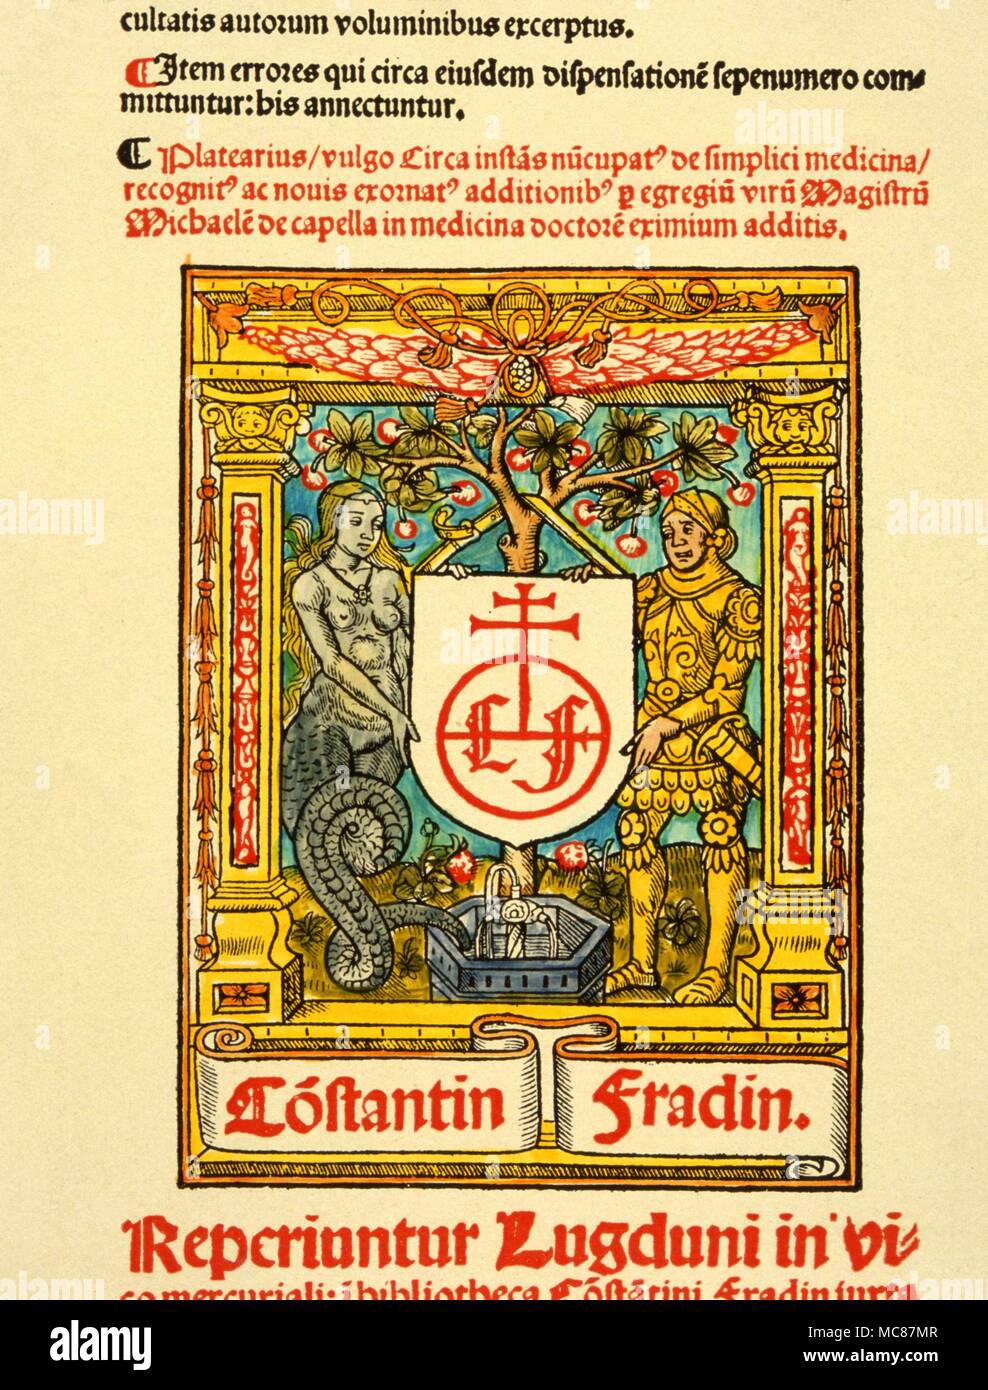 cultatis autorum voluminibus excerptus.
¶ Item errores qui circa eiusdem dispensationē sepenumero com-
mittuntur: bis annectuntur.
¶ Platearius/vulgo Circa instās nūcupatꝰ de simplici medicina/
recognitꝰ ac nouis exornatꝰ additionibꝰ ꝑ egregiū virū Magistrū
Michaelē de capella in medicina doctorē eximium additis.
L F
Cōstantin Fradin.
Reperiuntur Lugduni in vi-
co mercuriali: ī bibliotheca Cōstātini Fradin iuxta
alamy
a
alamy
MC87MR
www.alamy.com